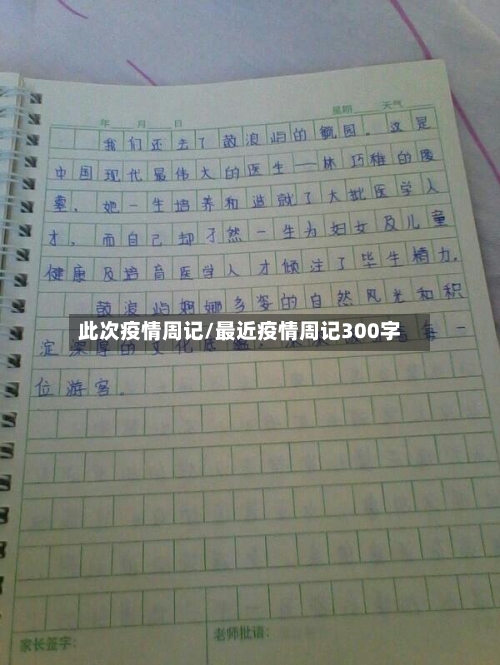 年 月 日 星期 天气
我们还去了鼓浪屿的毓园。这是
中国现代最伟大的医生——林巧稚的
她一生培养和造就了大批医学人
才，而自己却孑然一生为妇女及儿童
健康及培育医学人才倾注了毕生精力.
鼓浪屿婀娜多姿的自然风光和积
此次疫情周记/最近疫情周记300字
淀深厚的文化
一
位游客。
家长签字: 老师批语: